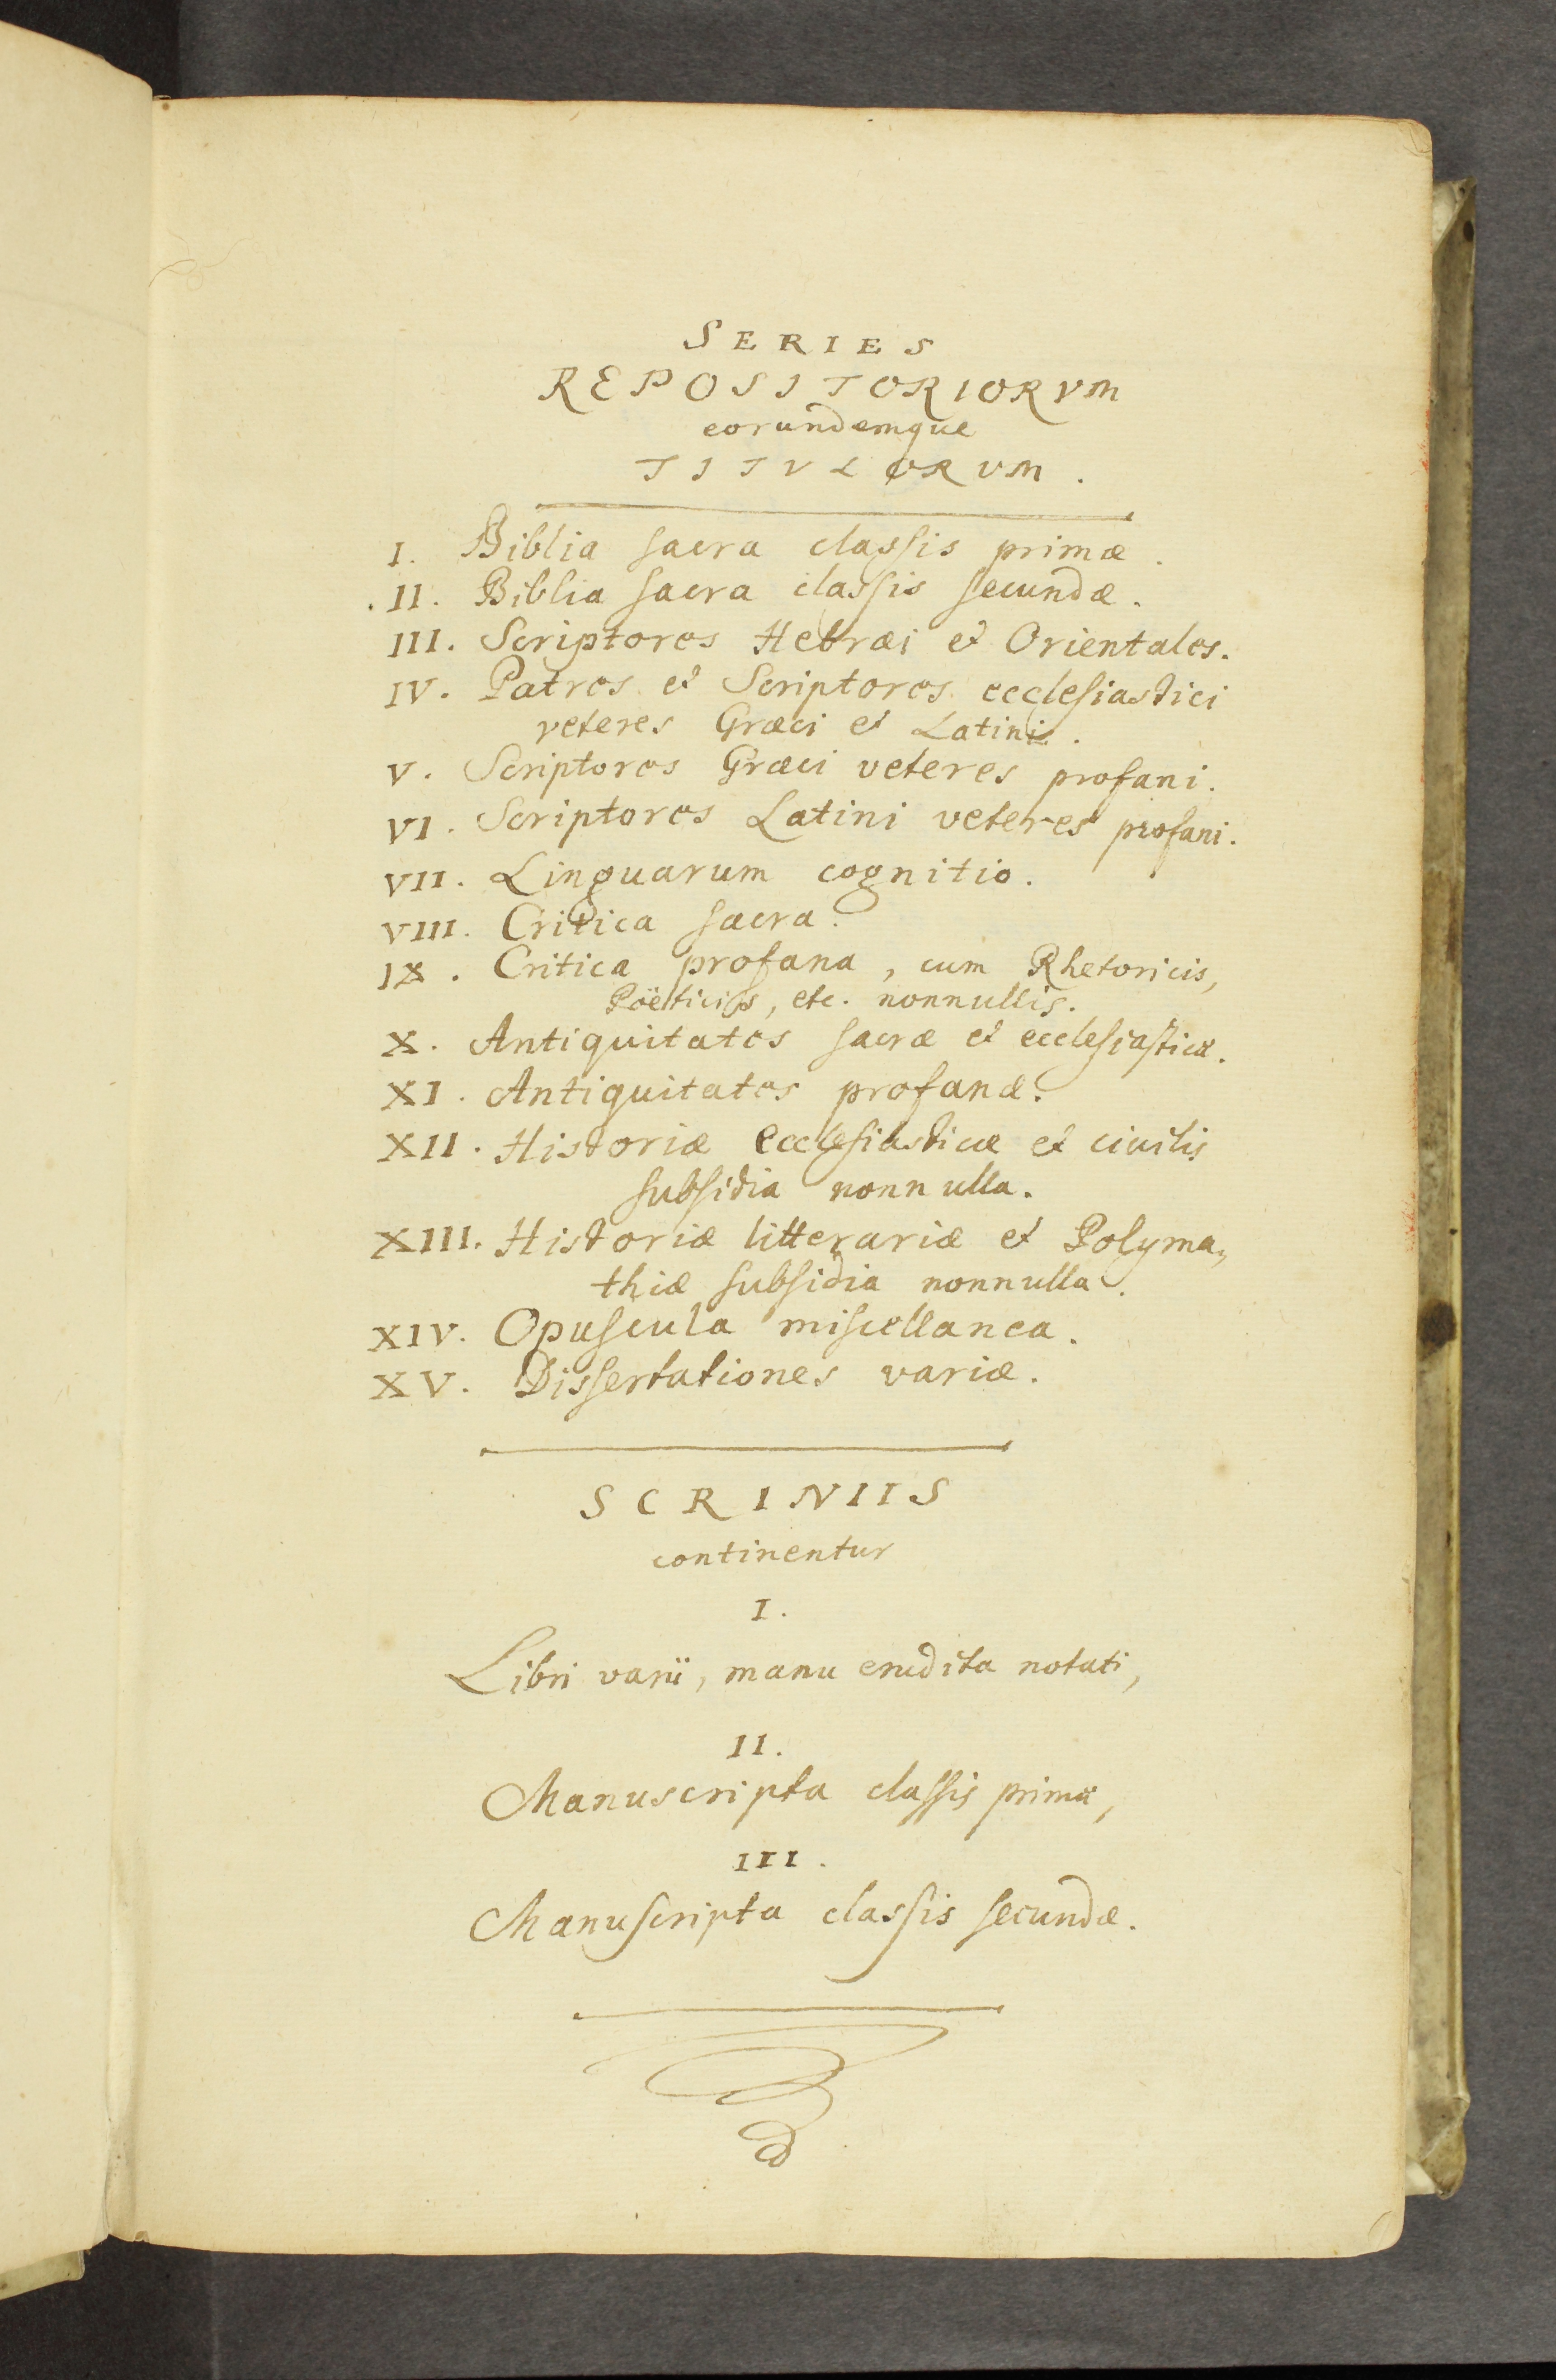 SERIES
REPOSITORIORVM
eorundemque
TITVLORVM.
I. Biblia sacra classis primæ.
II. Biblia sacra classis secundæ.
III. Scriptores Hebræi et Orientales.
IV. Patres et Scriptores ecclesiastici
veteres Græci et Latini.
V. Scriptores Græci veteres profani.
VI. Scriptores Latini veteres profani.
VII. Linguarum cognitio.
VIII. Critica sacra.
IX. Critica profana, cum Rhetoricis,
Poëticis, etc. nonnullis.
X. Antiquitates sacræ et ecclesiasticæ.
XI. Antiquitates profanæ.
XII. Historiæ Ecclesiasticæ et civilis
subsidia nonnulla.
XIII. Historiæ litterariæ et Polyma,,
thiæ subsidia nonnulla.
XIV. Opuscula miscellanea.
XV. Dissertationes variæ.
SCRINIIS
continentur
I.
Libri varii, manu erudita notati,
II.
Manuscripta classis primæ,
III.
Manuscripta classis secundæ.